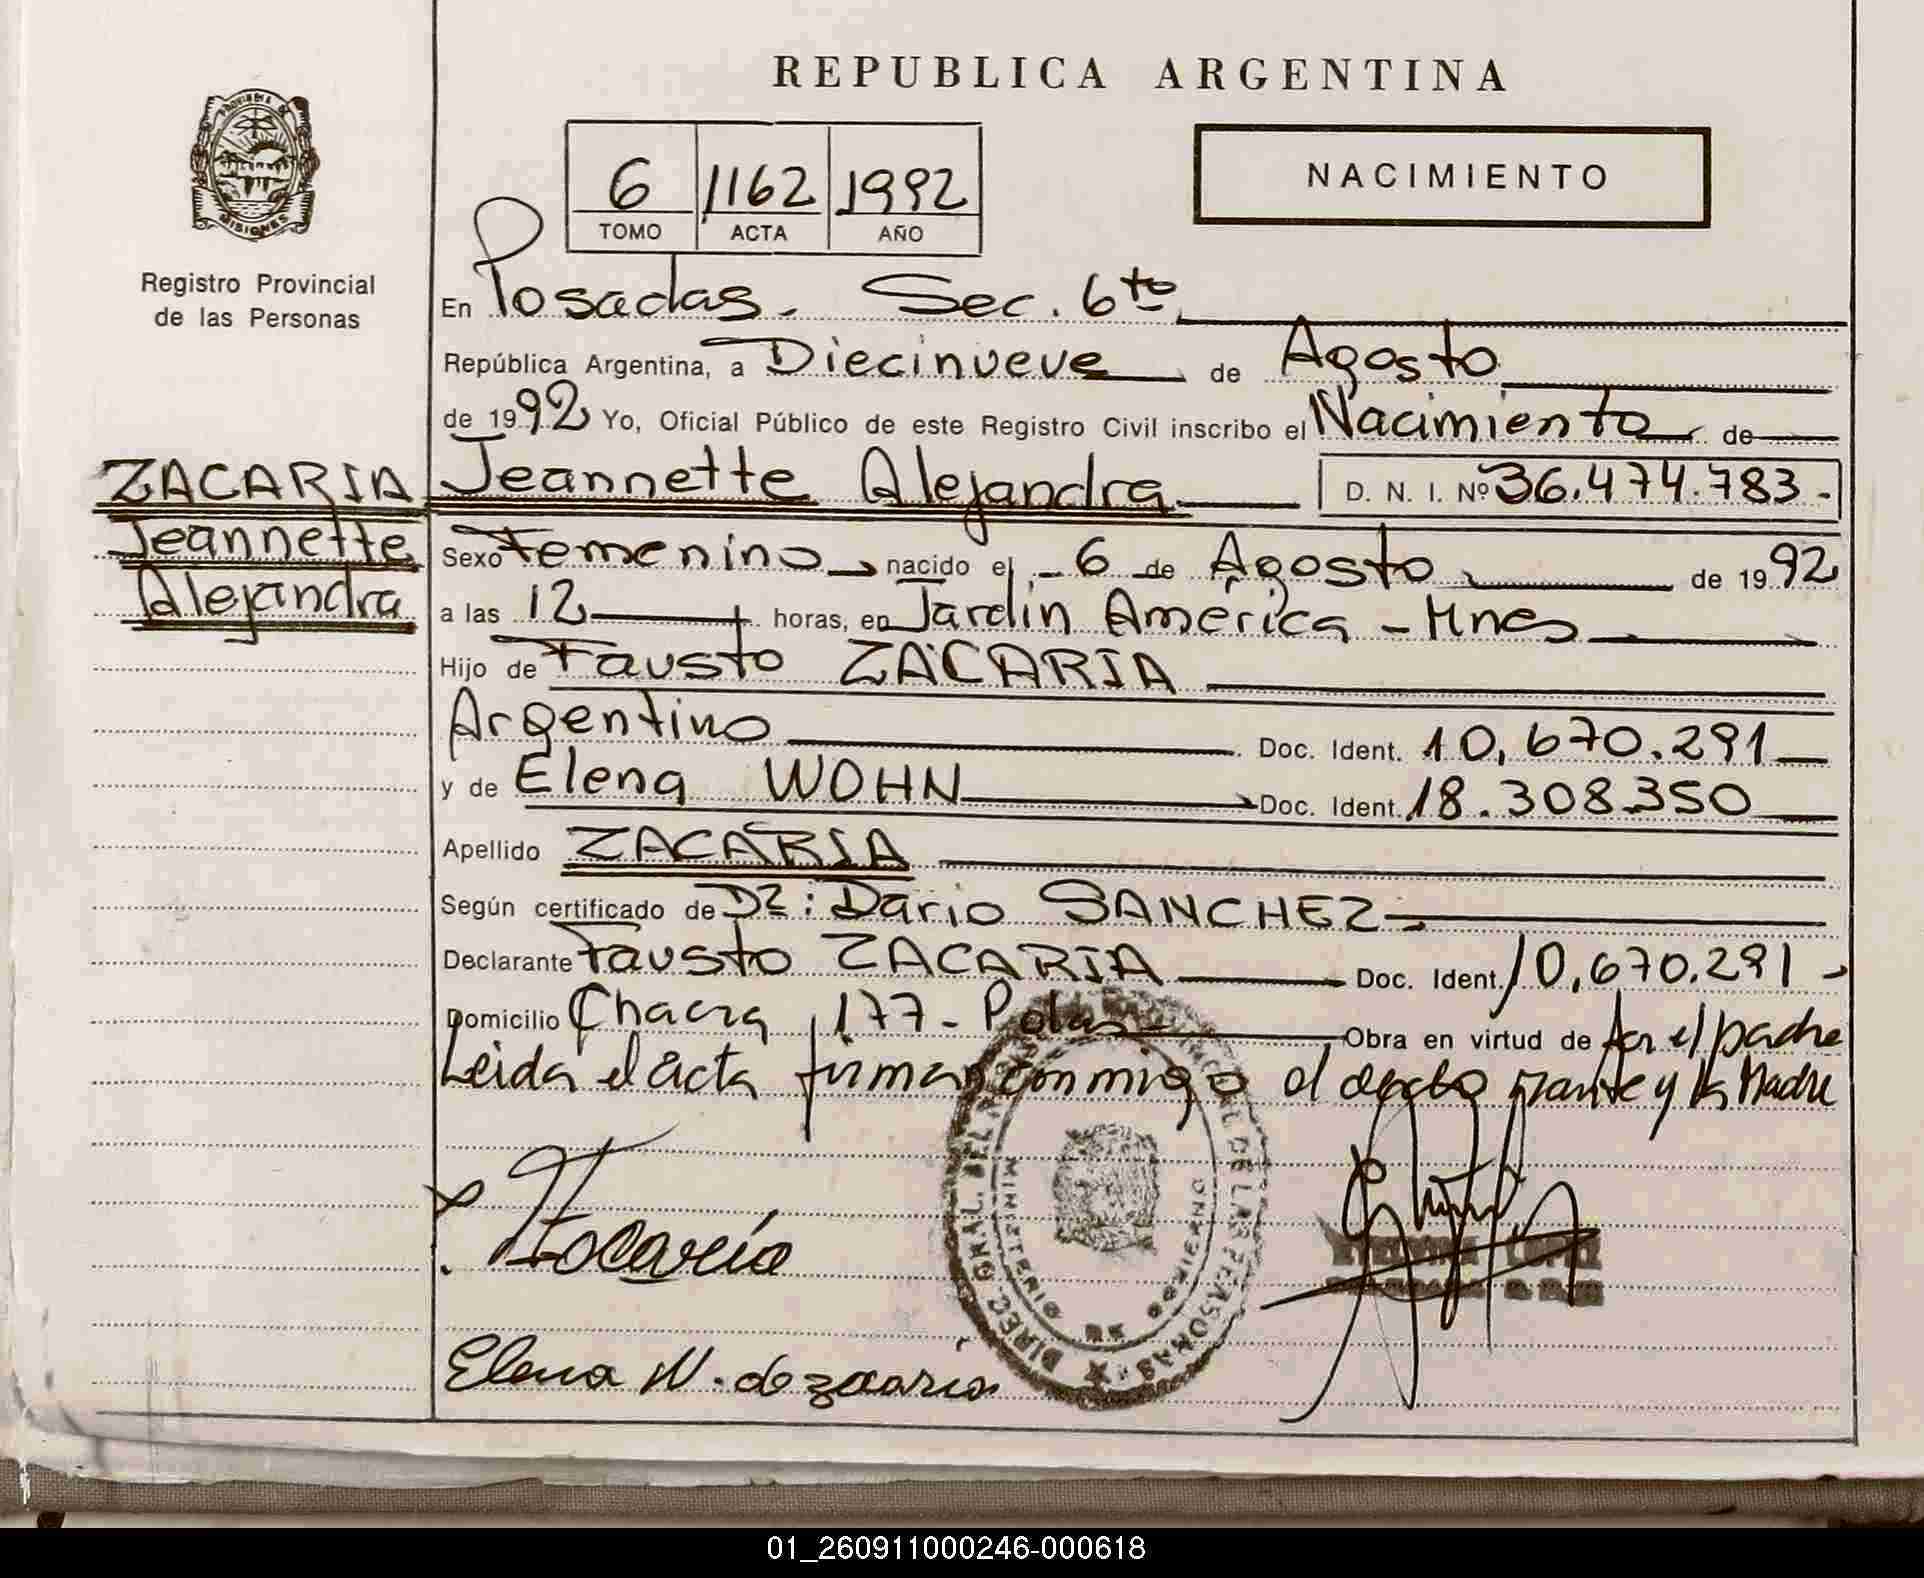 REPUBLICA ARGENTINA
PROVINCIA DE
MISIONES
Registro Provincial
de las Personas
6 1162 1992
TOMO ACTA AÑO
NACIMIENTO
En Posadas. Sec. 6to
República Argentina, a Diecinueve de Agosto
de 1992 Yo, Oficial Público de este Registro Civil inscribo el Nacimiento de
ZACARIA
Jeannette
Alejandra
Jeannette Alejandra D. N. I. Nº 36.474.783.-
Sexo Femenino nacido el 6 de Agosto de 1992
a las 12 horas, en Jardin América - Mnes
Hijo de Fausto ZACARIA
Argentino Doc. Ident. 10.670.291
y de Elena WOHN Doc. Ident. 18.308350
Apellido ZACARIA
Según certificado de Dr: Dario SANCHEZ-
Declarante Fausto ZACARIA Doc. Ident. 10.670.291-
Domicilio Chacra 177- Pdas- Obra en virtud de ser el padre
Leida el acta firman conmigo el y la Madre
Zacaría
DIREC. GRAL. DEL REGISTRO PROVINCIAL DE LAS PERSONAS
MINISTERIO DE GOBIERNO
LOPEZ
Elena W. de zacaria
01_260911000246-000618